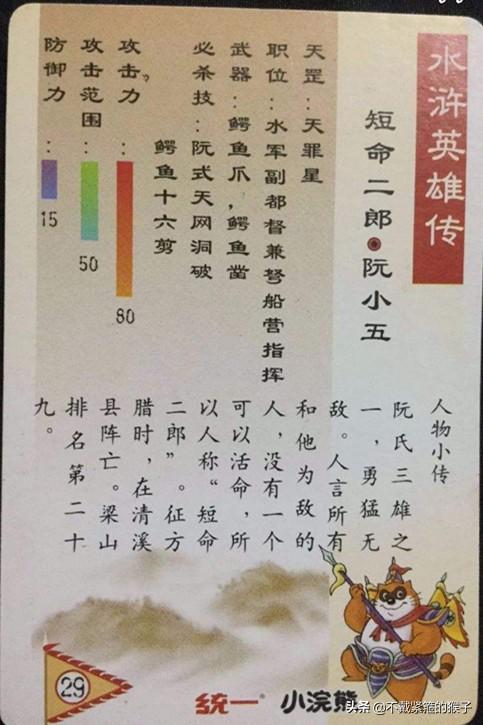 水浒英雄传
短命二郎·阮小五
天罡：天罪星
职位：水军副都督兼弩船营指挥
武器：鳄鱼爪，鳄鱼凿
必杀技：阮式天网洞破
鳄鱼十六剪
攻击力：
80
攻击范围：
50
防御力：
15
人物小传
阮氏三雄之
一，勇猛无
敌。人言所有
和他为敌的
人，没有一个
可以活命，所
以人称“短命
二郎”。征方
腊时，在清溪
县阵亡。梁山
排名第二十
九。
29
统一
小浣熊
头条 @不戴紧箍的猴子